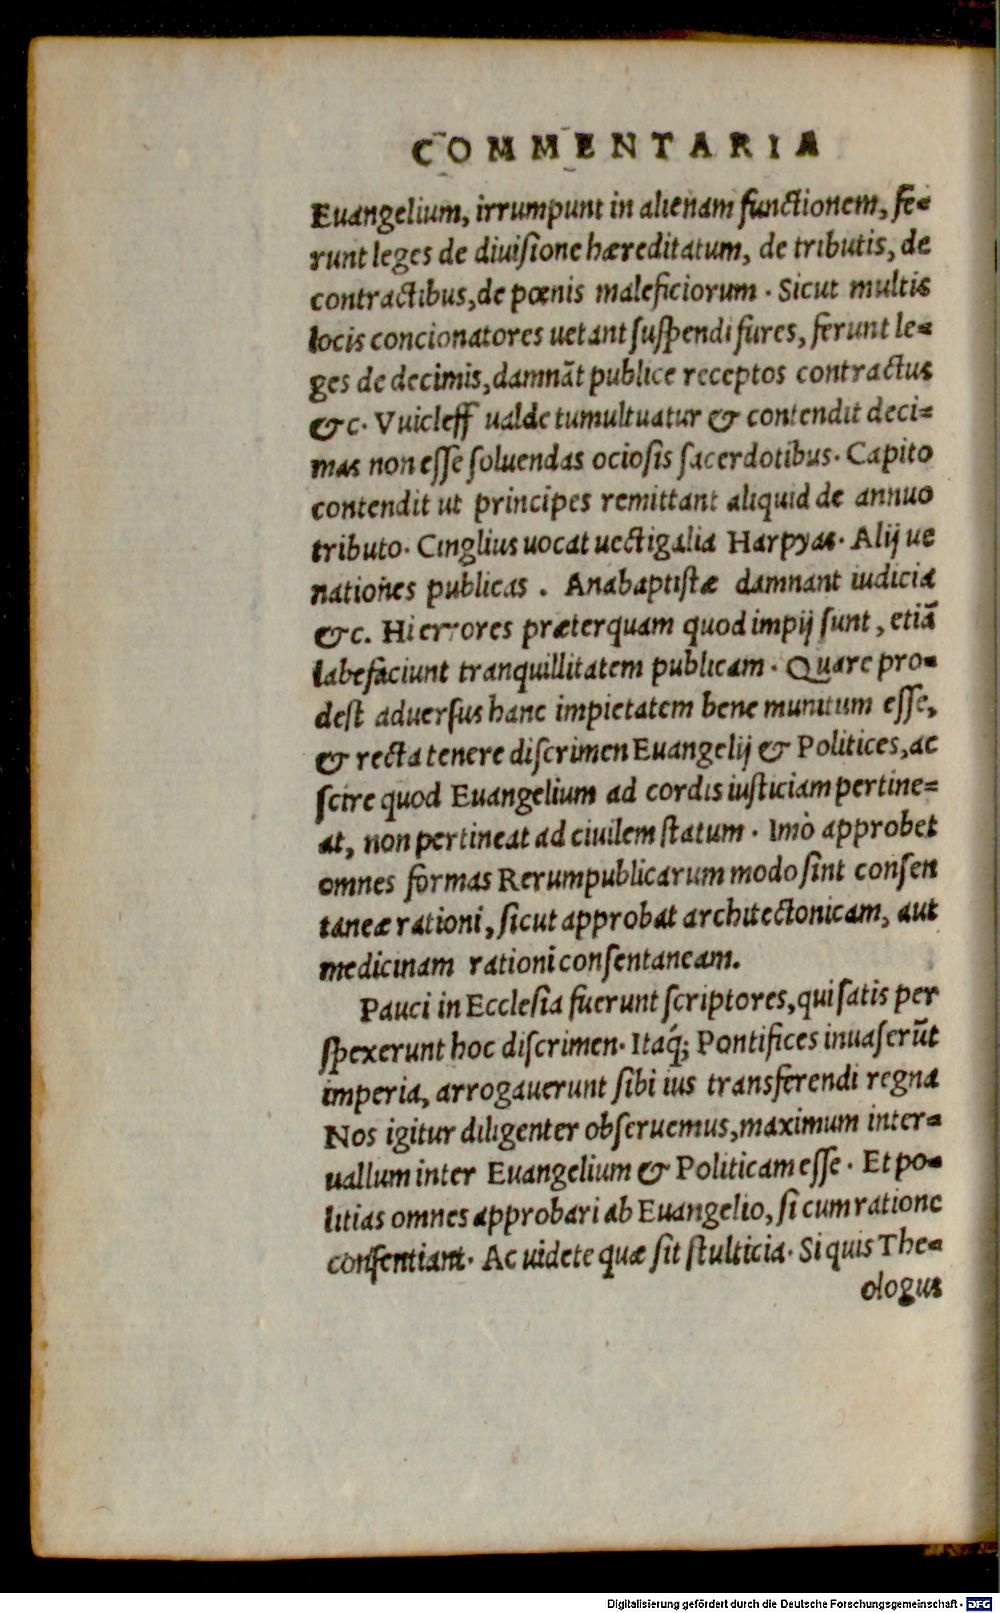 COMMENTARIA
Euangelium, irrumpunt in alienam functionem, fe-
runt leges de diuiſione hæreditatum, de tributis, de
contractibus, de pœnis maleficiorum. Sicut multis
locis concionatores uetant ſuſpendi fures, ferunt le-
ges de decimis, damnãt publice receptos contractus
&c. Vuicleff ualde tumultuatur & contendit deci-
mas non eſſe ſoluendas ocioſis ſacerdotibus. Capito
contendit ut principes remittant aliquid de annuo
tributo. Cinglius uocat uectigalia Harpyas. Alij ue
nationes publicas. Anabaptiſtæ damnant iudicia
&c. Hi errores præterquam quod impij ſunt, etiã
labefaciunt tranquillitatem publicam. Quare pro-
deſt aduerſus hanc impietatem bene munitum eſſe,
& recta tenere diſcrimen Euangelij & Politices, ac
ſcire quod Euangelium ad cordis iuſticiam pertine-
at, non pertineat ad ciuilem ſtatum. Imò approbet
omnes formas Rerumpublicarum modo ſint conſen
taneæ rationi, ſicut approbat architectonicam, aut
medicinam rationi conſentaneam.
Pauci in Eccleſia fuerunt ſcriptores, qui ſatis per
ſpexerunt hoc diſcrimen. Itaq́; Pontifices inuaſerũt
imperia, arrogauerunt ſibi ius transferendi regna
Nos igitur diligenter obſeruemus, maximum inter-
uallum inter Euangelium & Politicam eſſe. Et po-
litias omnes approbari ab Euangelio, ſi cum ratione
conſentiant. Ac uidete quæ ſit ſtulticia. Si quis The-
ologus
Digitalisierung gefördert durch die Deutsche Forschungsgemeinschaft - DFG